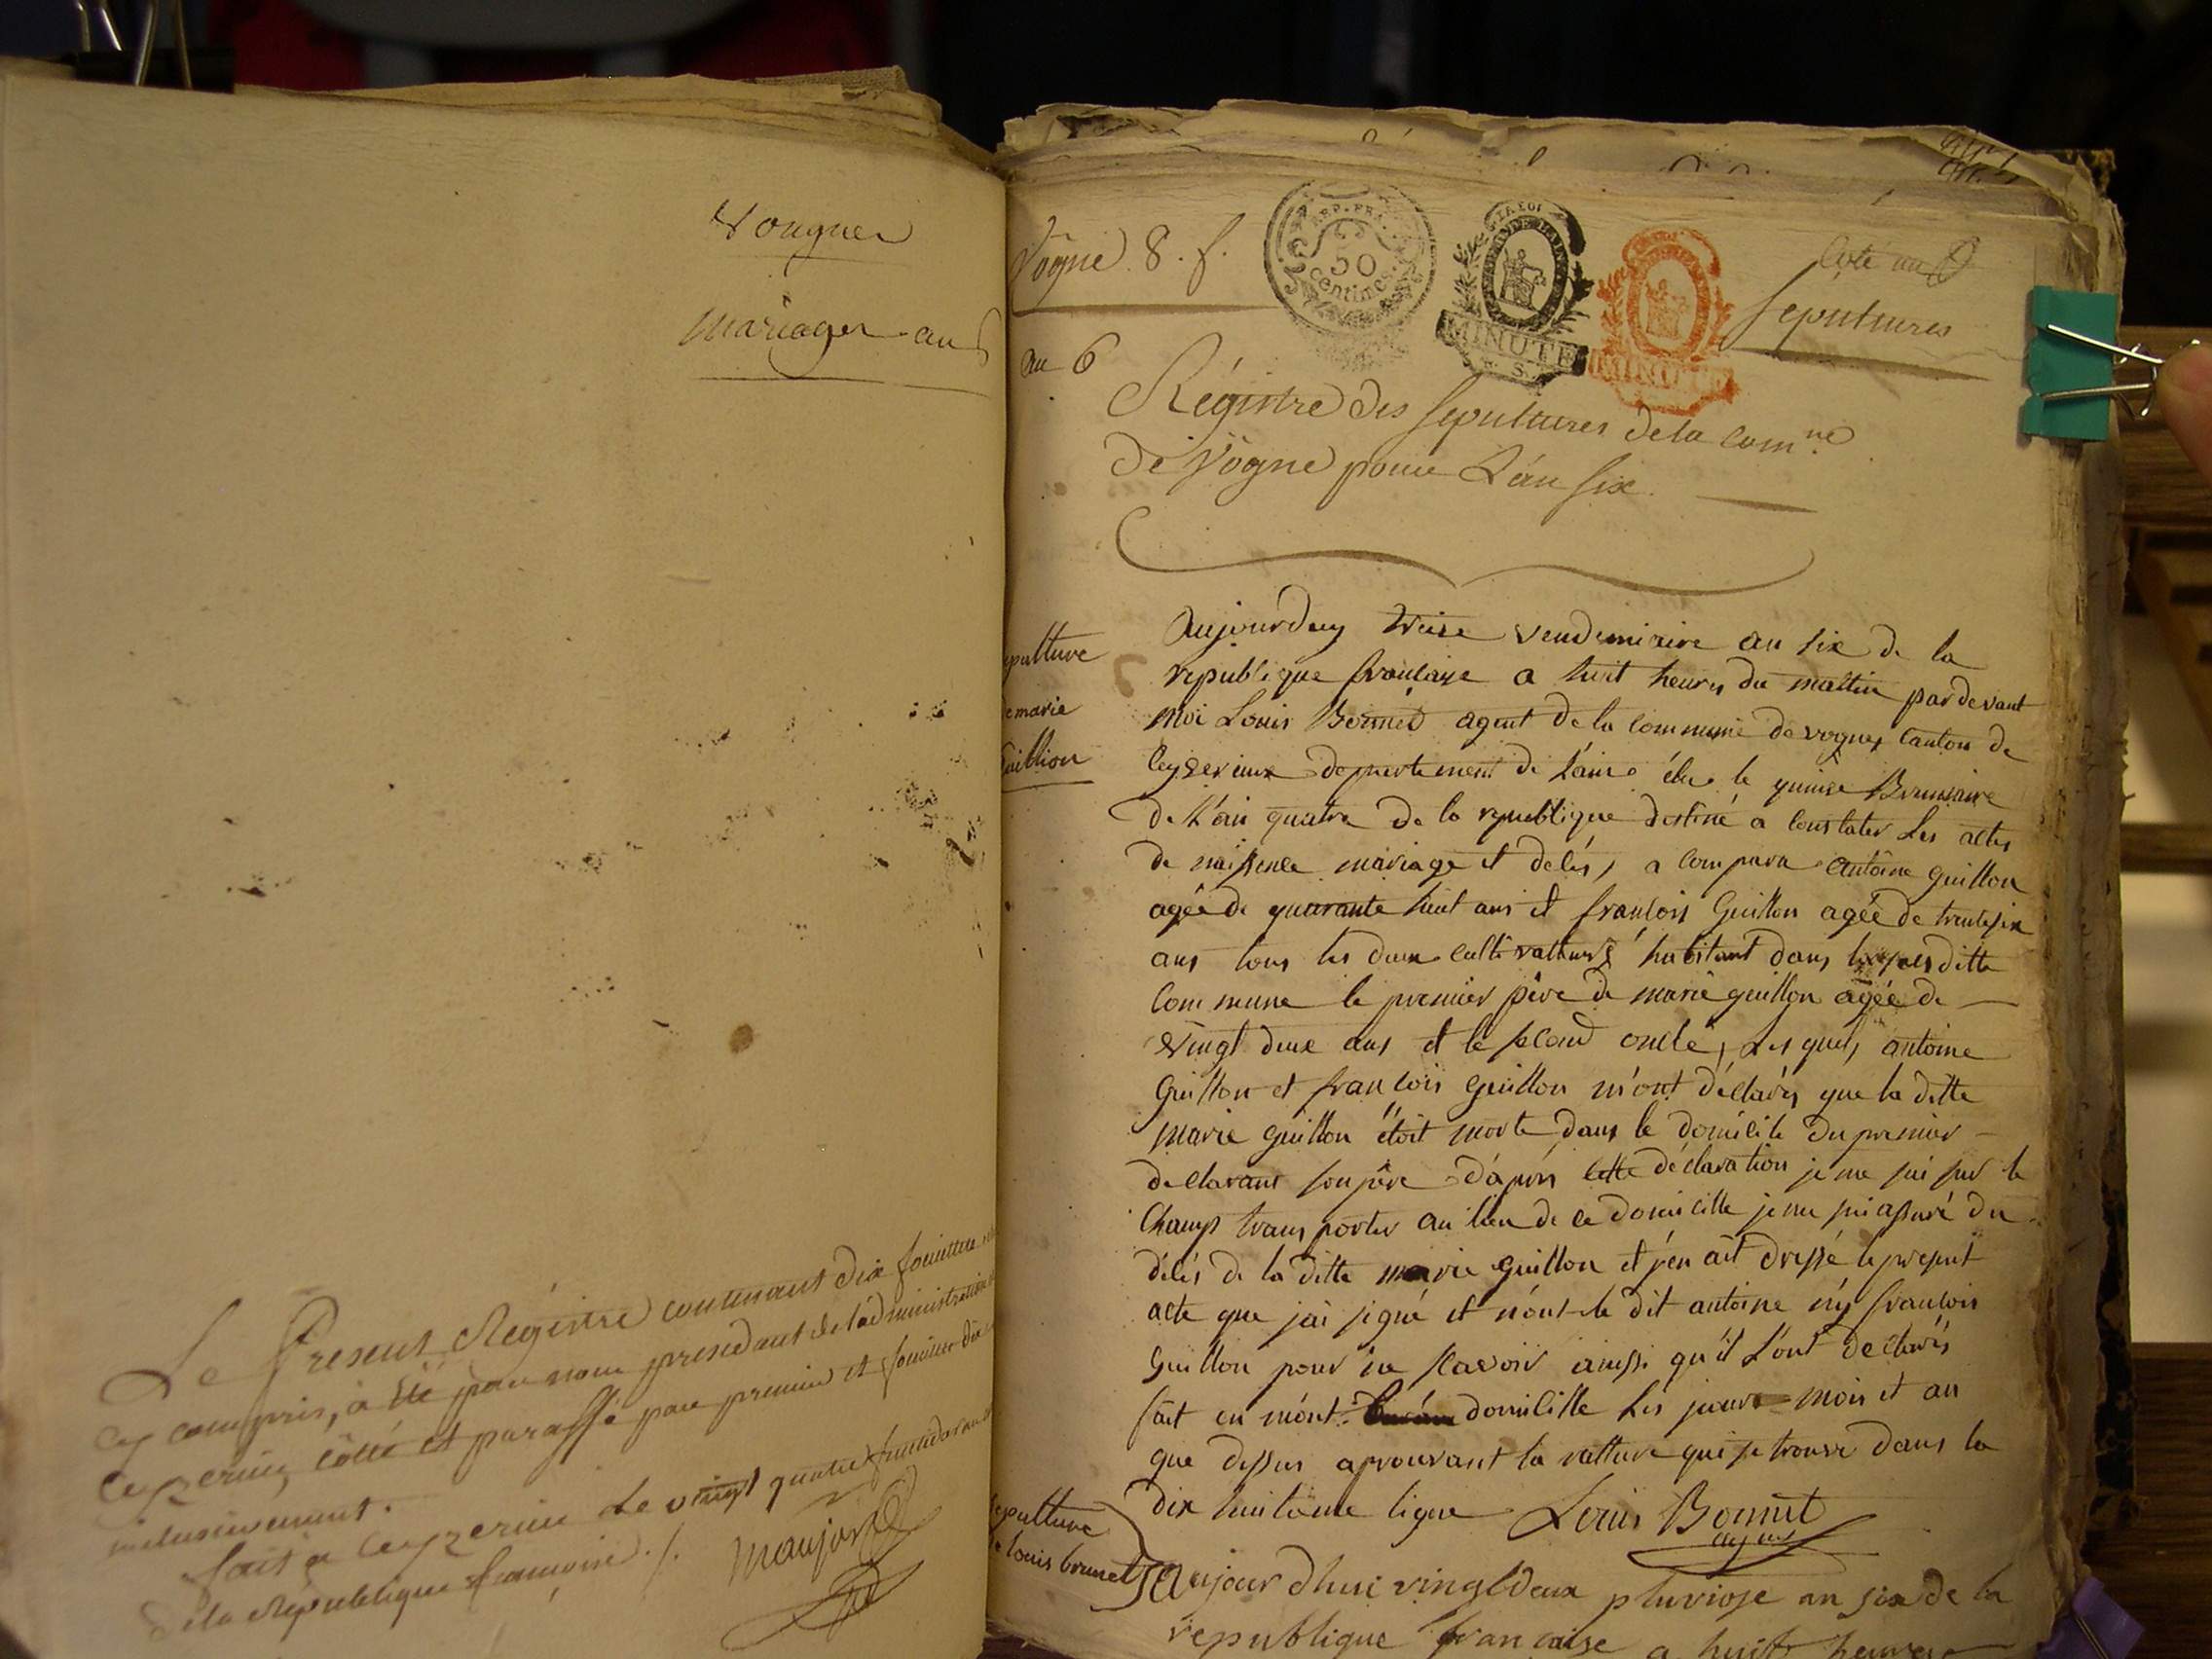 Vougnes
Mariages an
Le Présent Régistre contenant dix feuillets
cy compris, à été par nous president de l'administration
Ceyzeriez, côtté et paraffé par premier et dernier dix
inclusivement.
fait a Ceyzerieu le vingt quatre fructidor an
de la République francoise ./.
Maujard
Vôgne 8. f.
REP. FRA.
50
Centimes
MINUTE
MINUTE
Coté un
sepultures
an 6
Régistre des sepultures de la com.ne
De Vôgne pour L'an six.
epulture
emarie
Guillion
Aujourduy treise vendemiaire an six de la
republique francaise a huit heures du mattin pardevant
moi Louis Bonnet agent de la commune de vognes canton de
Ceyserieux departement de L'ain élu le quinse Brumaire
de L'an quatre de la republique destiné a constater Les actes
de naissence mariage et décés, a comparu antoine guillon
agée de quarante huit ans et francois Guillon agée de trentesix
ans tous les deux cultivatteurs habitant dans la susditte
Commune le premier pére de marie guillon agée de
vingt deux ans et le second oncle, Les quels antoine
Guillon et francois Guillon m'ont déclarés que la ditte
marie guillon étoit morte dans le domicile du premier
declarant son pére d'aprés cette déclaration je me sui sur le
Champ transporter au lieu de ce domicille je me sui assuré du
décés de la ditte marie guillon et j'en ait dressé le present
acte que jai signé et n'ont le dit antoine n'y francois
Guillon pour ne scavoir ainssi qu'il L'ont declarés
fait en mónt domicille Les jours mois et an
que dessus aprouvant la ratture qui se trouve dans la
dix huitieme ligne Louis Bonnet
agent
epulture
e louis brunet
Aujour dhui vingt deux pluviose an six de la
republique francaise a huit heures